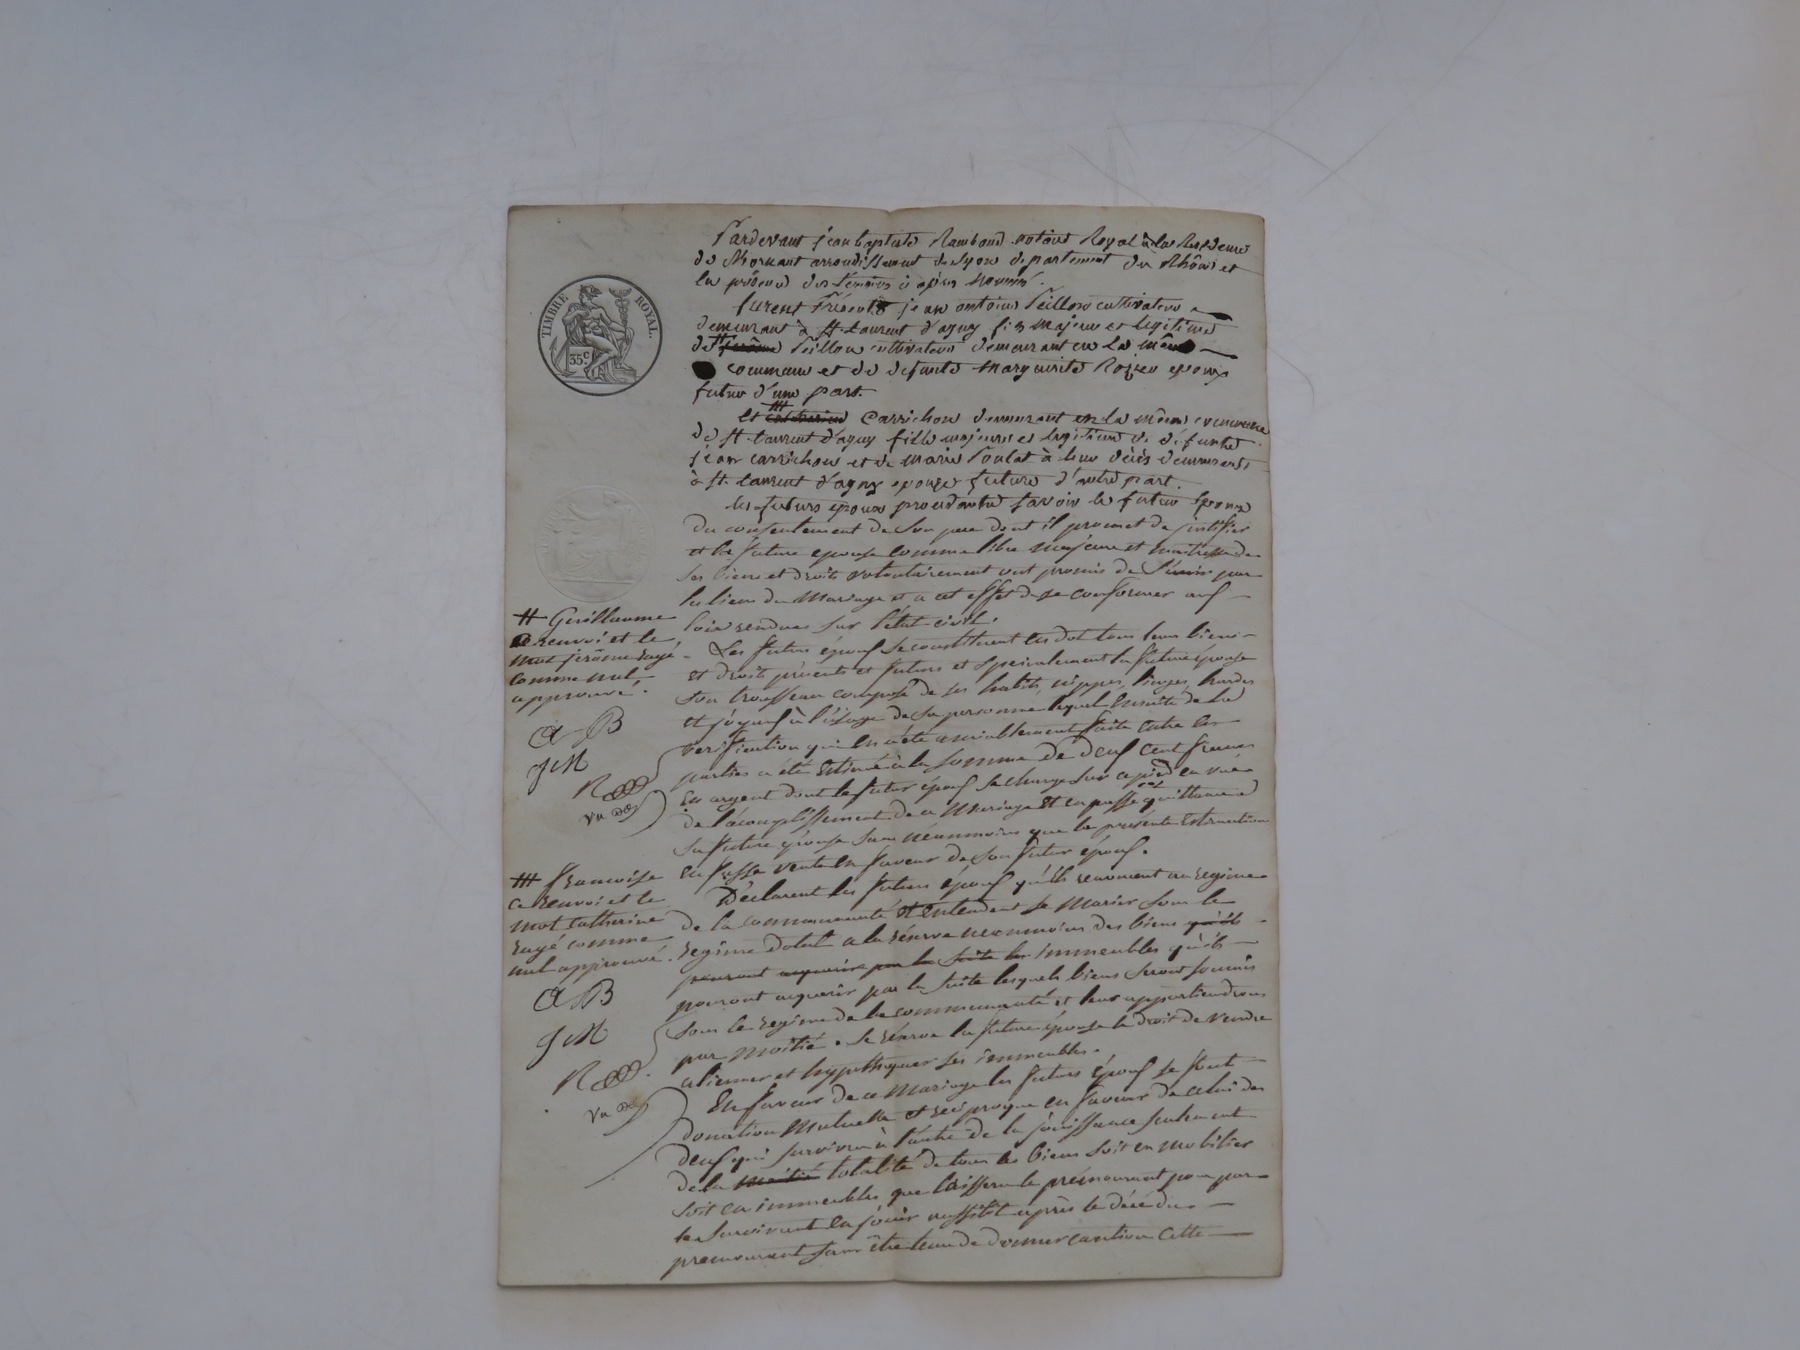 Pardevant jean baptiste Rambaud notaire Royal à la Residence
de Mornant arrondissement de Lyon departement du Rhône et
en présence des temoins ci après Nommés.
furent Présents jean antoine Peillon cultivateur
demeurant à St Laurent d'agny fils majeur et legitime
de # jerôme Peillon cultivateur demeurant en la même
commune et de defunte Marguerite Rozier epoux
futur d'une part.
Et ### catherine Carrichon demeurant en la même commune
de St Laurent d'agny fille majeure et legitime de defunts
jean carrichon et de marie Poulat à leur décès demeurants
à St Laurent d'agny epouse future d'autre part.
lesquels futurs epoux procedants savoir le futur Epoux
du consentement de son pere dont il promet de justifier
et la future epouse comme libre majeure et maitresse de
ses biens et droits volontairement ont promis de s'unir par
les liens du Mariage et a cet effet de se conformer aux
lois rendues sur l'état civil.
Les futurs époux se constituent en dot tous leurs biens
et droits présents et futurs et specialement la future épouse
son trousseau composé de ses habits, nippes, linges, hardes
et joyaux à l'usage de sa personne lequel ensuite de la
verification qui en a été amiablement faite entre les
parties a été estimé à la somme de deux cent francs
en argent dont le futur époux se charge sur ce pied en vue
de l'acomplissement de ce Mariage et en passe quittance à
sa future épouse sans néanmoins que la présente Estimation
en fasse vente en faveur de son futur époux.
Déclarent les futurs époux qu'ils renoncent au regime
de la communauté et entendent se Marier sous le
regime dotal a la réserve neanmoins des biens qu'ils
pouront acquerir par la suite les immeubles qu'ils
pouront acquerir par la suite lesquels biens seront soumis
sous le regime de la communauté et leur appartiendront
par moitié. se réserve la future épouse le droit de vendre
aliener et hypothequer ses immeubles.
En faveur de ce Mariage les futurs époux se font
donation Mutuelle et reciproque en faveur de celui des
deux qui survivra à l'autre de la jouissance seulement
de la moitié totalité de tous les biens soit en mobilier
soit en immeubles que laissera le prémourant pour par
le survivant en jouir aussitôt après le décè du
premourant sans être tenu de donner caution cette
TIMBRE ROYAL.
35c
# Guillaume
ce renvoi et le
mot jerôme rayé
comme nul
approuvé.
JM
### francoise
ce renvoi et le
mot catherine
rayé comme
nul approuvé.
JM